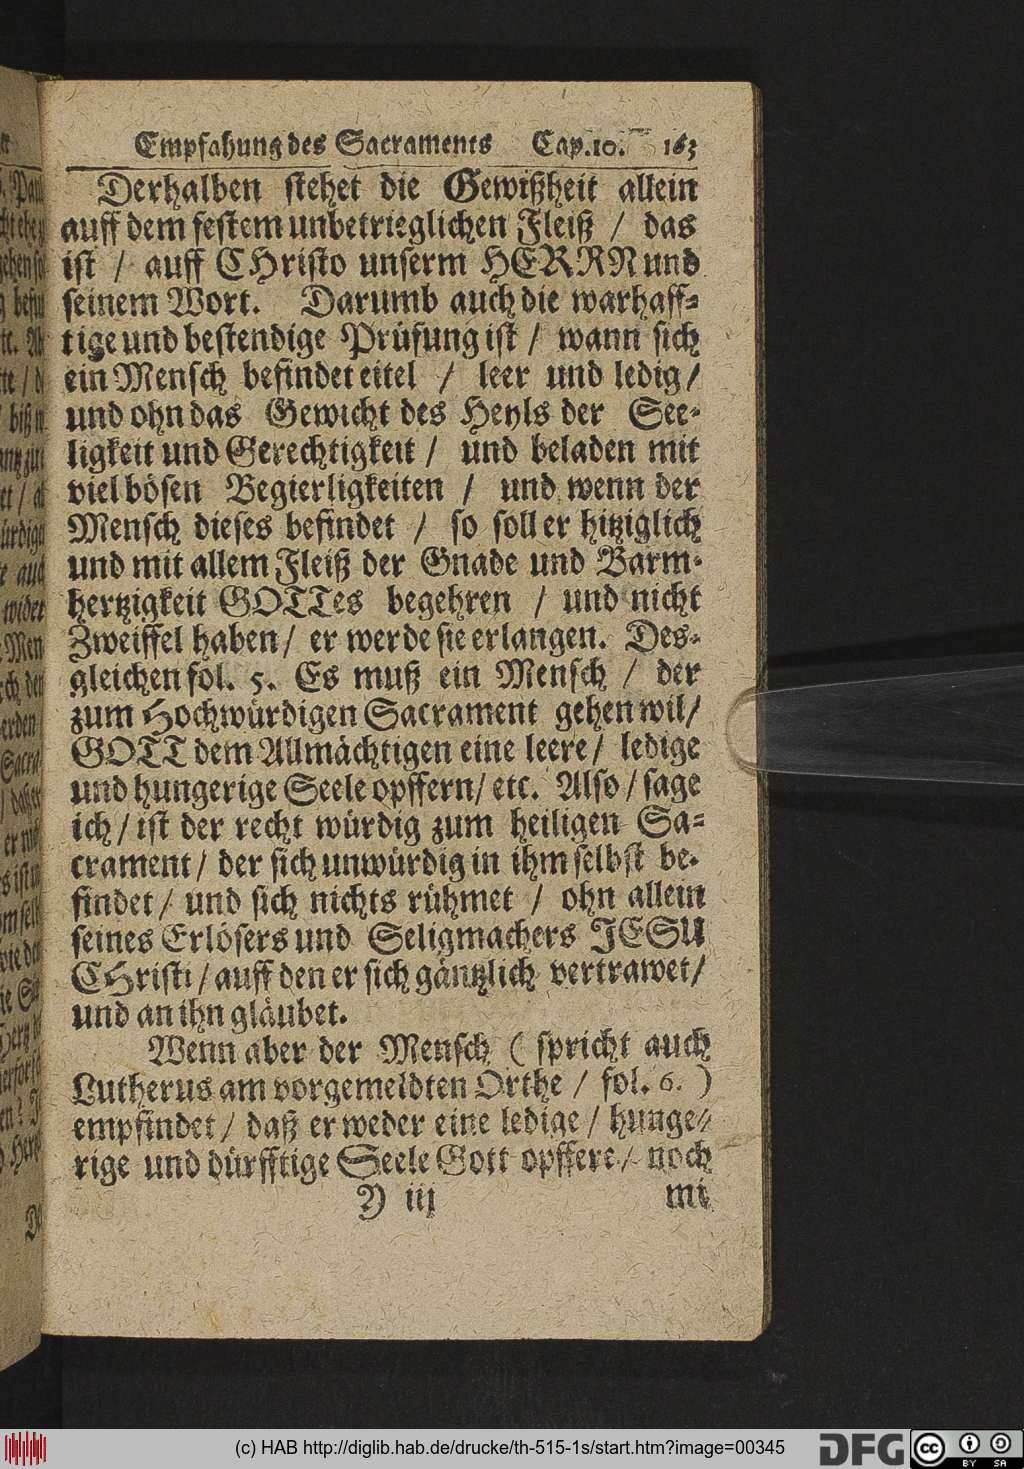 Empfahung des Sacraments Cap. 10. 163
Derhalben stehet die Gewißheit allein
auff dem festem unbetrieglichen Fleiß / das
ist / auff CHristo unserm HERRN und
seinem Wort. Darumb auch die warhaff-
tige und bestendige Prüfung ist / wann sich
ein Mensch befindet eitel / leer und ledig /
und ohn das Gewicht des Heyls der See-
ligkeit und Gerechtigkeit / und beladen mit
viel bösen Begierligkeiten / und wenn der
Mensch dieses befindet / so soll er hitziglich
und mit allem Fleiß der Gnade und Barm-
hertzigkeit GOTTes begehren / und nicht
Zweiffel haben / er werde sie erlangen. Des-
gleichen fol. 5. Es muß ein Mensch / der
zum Hochwürdigen Sacrament gehen wil /
GOTT dem Allmächtigen eine leere / ledige
und hungerige Seele opffern / etc. Also / sage
ich / ist der recht würdig zum heiligen Sa-
crament / der sich unwürdig in ihm selbst be-
findet / und sich nichts rühmet / ohn allein
seines Erlösers und Seligmachers JESU
CHristi / auff den er sich gäntzlich vertrawet /
und an ihn gläubet.
Wenn aber der Mensch ( spricht auch
Lutherus am vorgemeldten Orthe / fol. 6. )
empfindet / daß er weder eine ledige / hunge-
rige und dürfftige Seele Gott opffere / noch
Y iij mi
(c) HAB http://diglib.hab.de/drucke/th-515-1s/start.htm?image=00345
DFG
cc BY SA